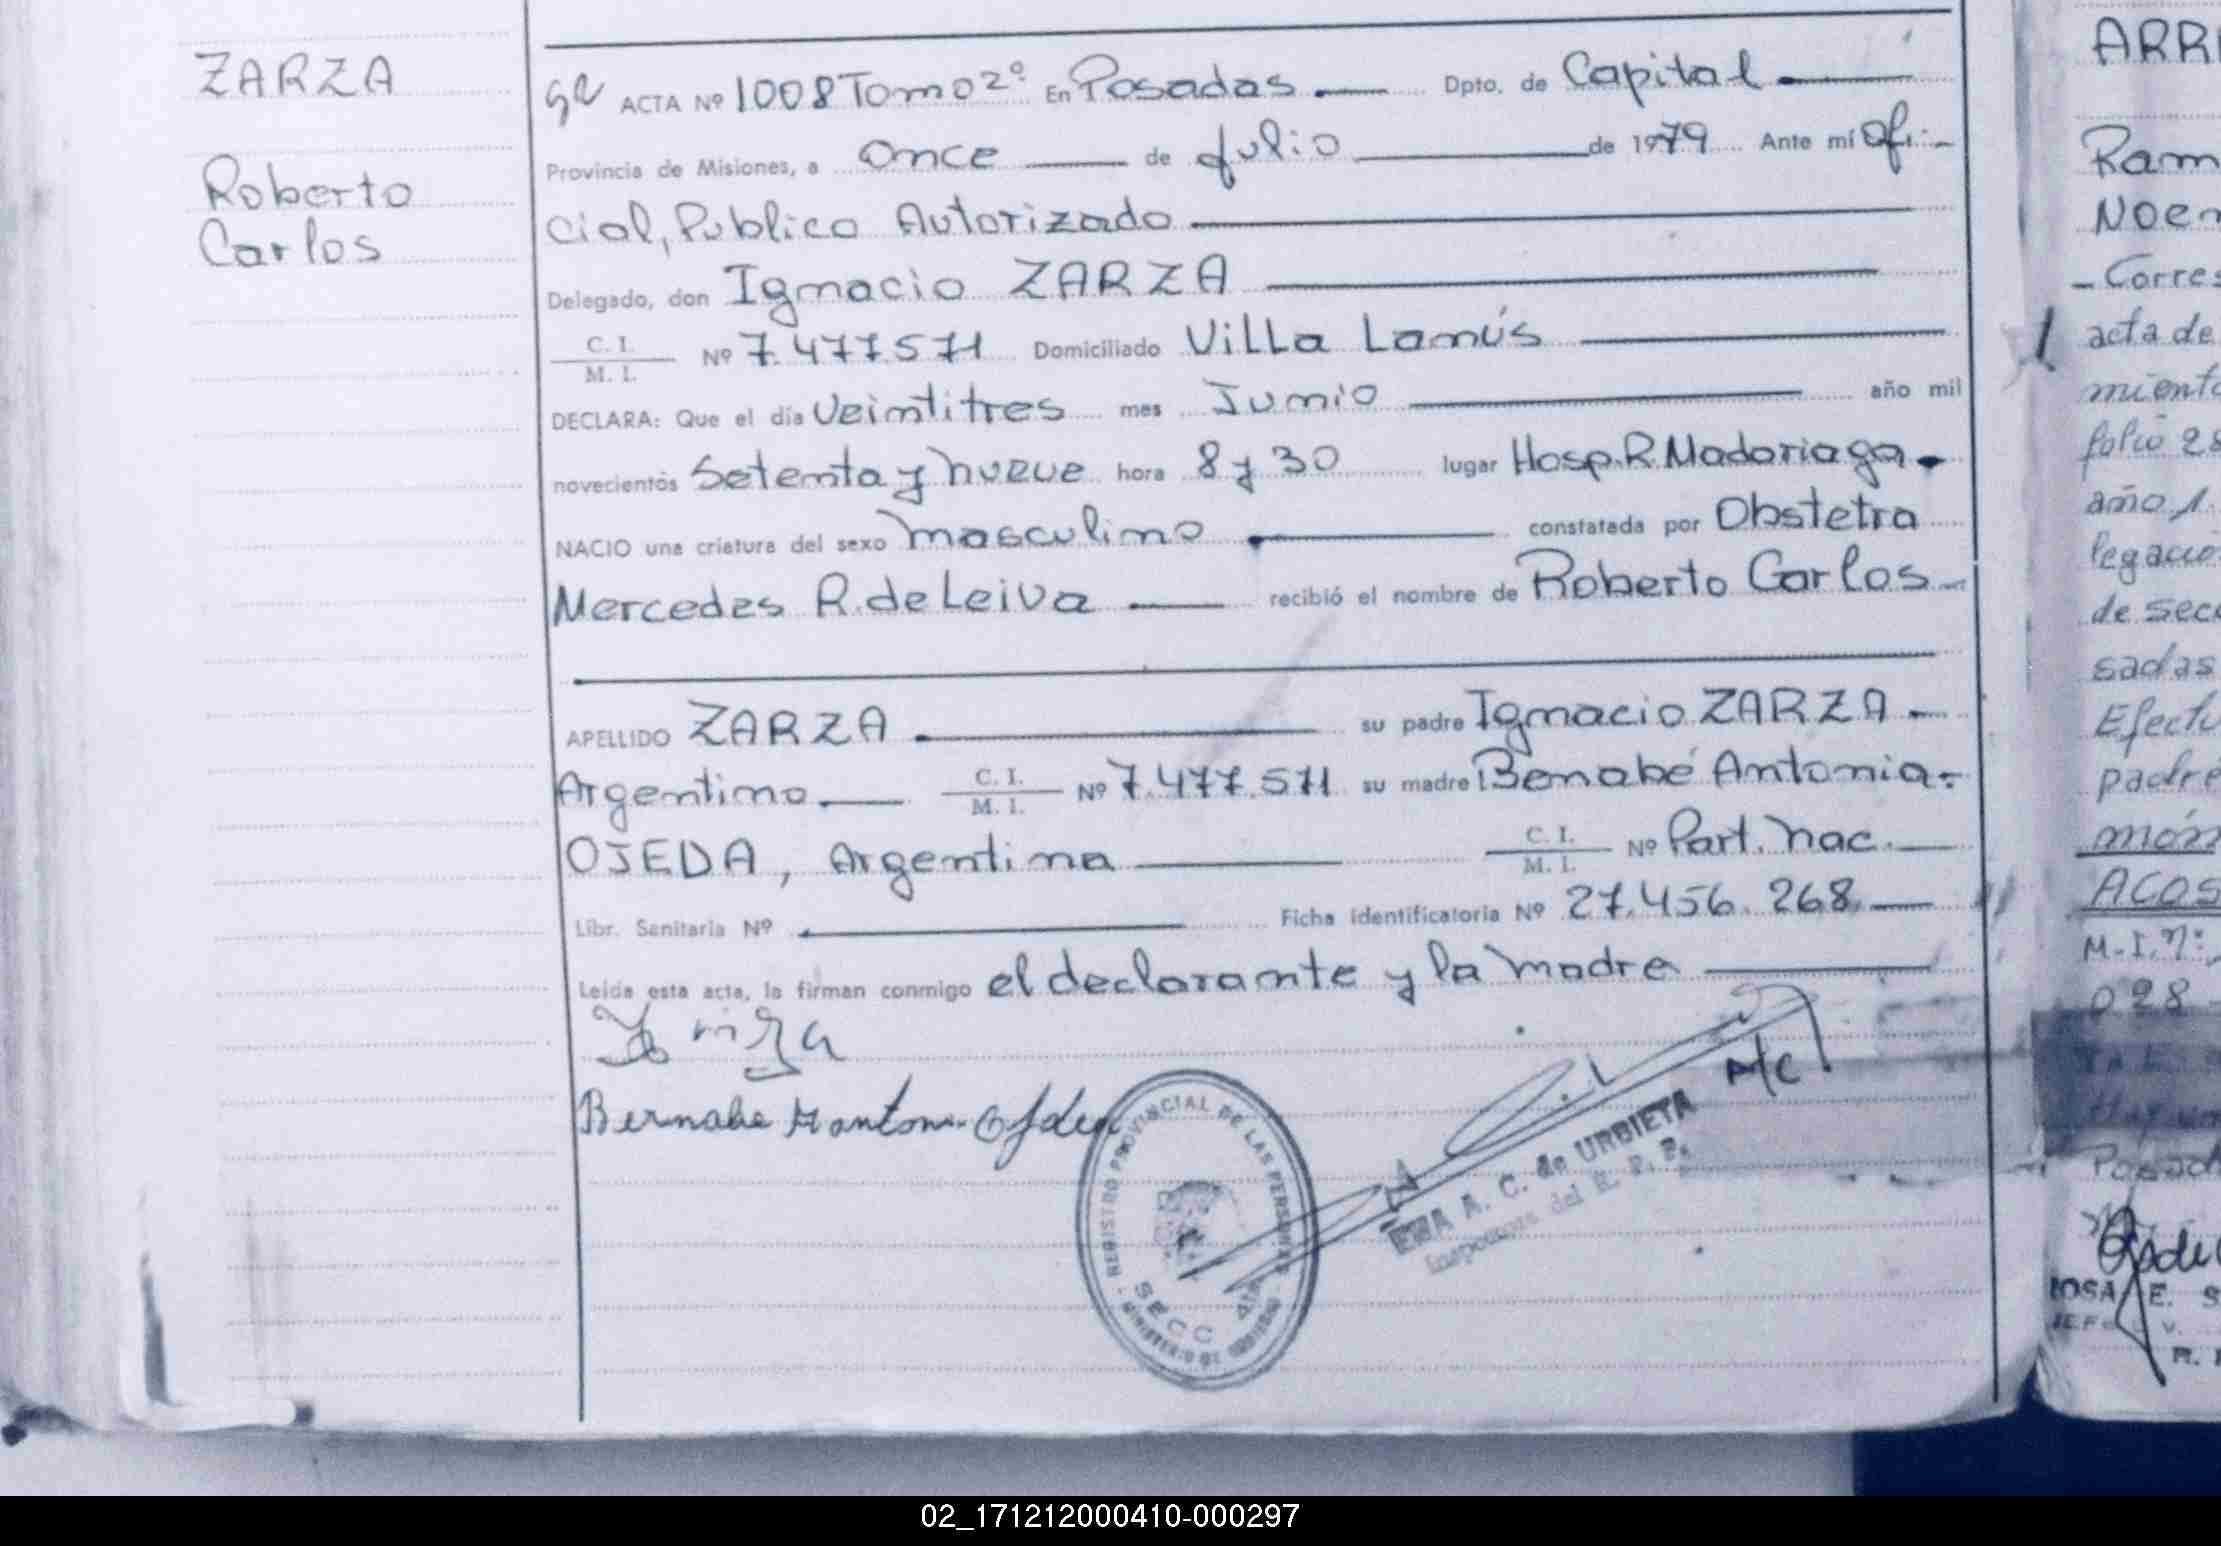 ZARZA
Roberto
Carlos
ACTA Nº 1008 Tomo 2º En Posadas Dpto. de Capital
Provincia de Misiones, a Once de Julio de 1979 Ante mí Ofi-
cial, Publico Autorizado
Delegado, don Ignacio ZARZA
C. I.
M. I. Nº 7.477.571 Domiciliado Villa Lanús
DECLARA: Que el día Veintitres mes Junio año mil
novecientos Setenta y nueve hora 8 y 30 lugar Hosp. R. Madariaga.
NACIO una criatura del sexo masculino constatada por Obstetra
Mercedes R. de Leiva recibió el nombre de Roberto Carlos
APELLIDO ZARZA su padre Ignacio ZARZA
Argentino C. I.
M. I. Nº 7.477.571 su madre Benabé Antonia
OJEDA, Argentina C. I.
M. I. Nº Part. nac.
Libr. Sanitaria Nº Ficha identificatoria Nº 27.456.268
Leída esta acta, la firman conmigo el declarante y la madre
Bernabe
A/C
A. C. de URBIETA
Inspectora del R. P. P.
REGISTRO PROVINCIAL DE LAS PERSONAS
SECC. 4ta
MINISTERIO DE GOBIERNO
ARR
Ram
Noem
- Corres
acta de
miento
folio 28
año 1.
legació
de secc
sadas
Efectu
padre
món
ACOS
M.I. Nº:
028
Posad
ROSA E. S
JEF
02_171212000410-000297